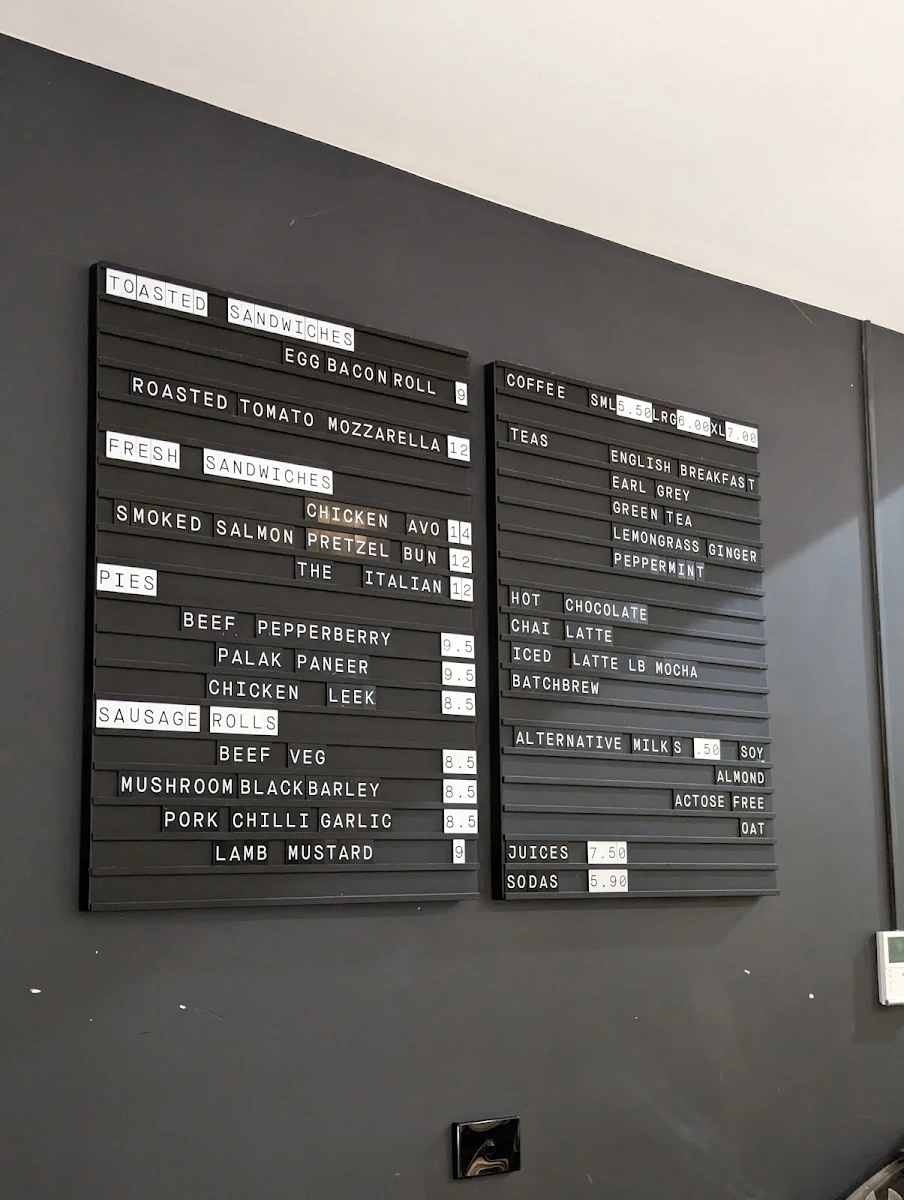 TOASTED SANDWICHES
EGG BACON ROLL 9
ROASTED TOMATO MOZZARELLA 12
FRESH SANDWICHES
CHICKEN AVO 14
SMOKED SALMON PRETZEL BUN 12
THE ITALIAN 12
PIES
BEEF PEPPERBERRY 9.5
PALAK PANEER 9.5
CHICKEN LEEK 8.5
SAUSAGE ROLLS
BEEF VEG 8.5
MUSHROOM BLACK BARLEY 8.5
PORK CHILLI GARLIC 8.5
LAMB MUSTARD 9
COFFEE SML 5.50 LRG 6.00 XL 7.00
TEAS
ENGLISH BREAKFAST
EARL GREY
GREEN TEA
LEMONGRASS GINGER
PEPPERMINT
HOT CHOCOLATE
CHAI LATTE
ICED LATTE LB MOCHA
BATCHBREW
ALTERNATIVE MILKS .50 SOY
ALMOND
ACTOSE FREE
OAT
JUICES 7.50
SODAS 5.90